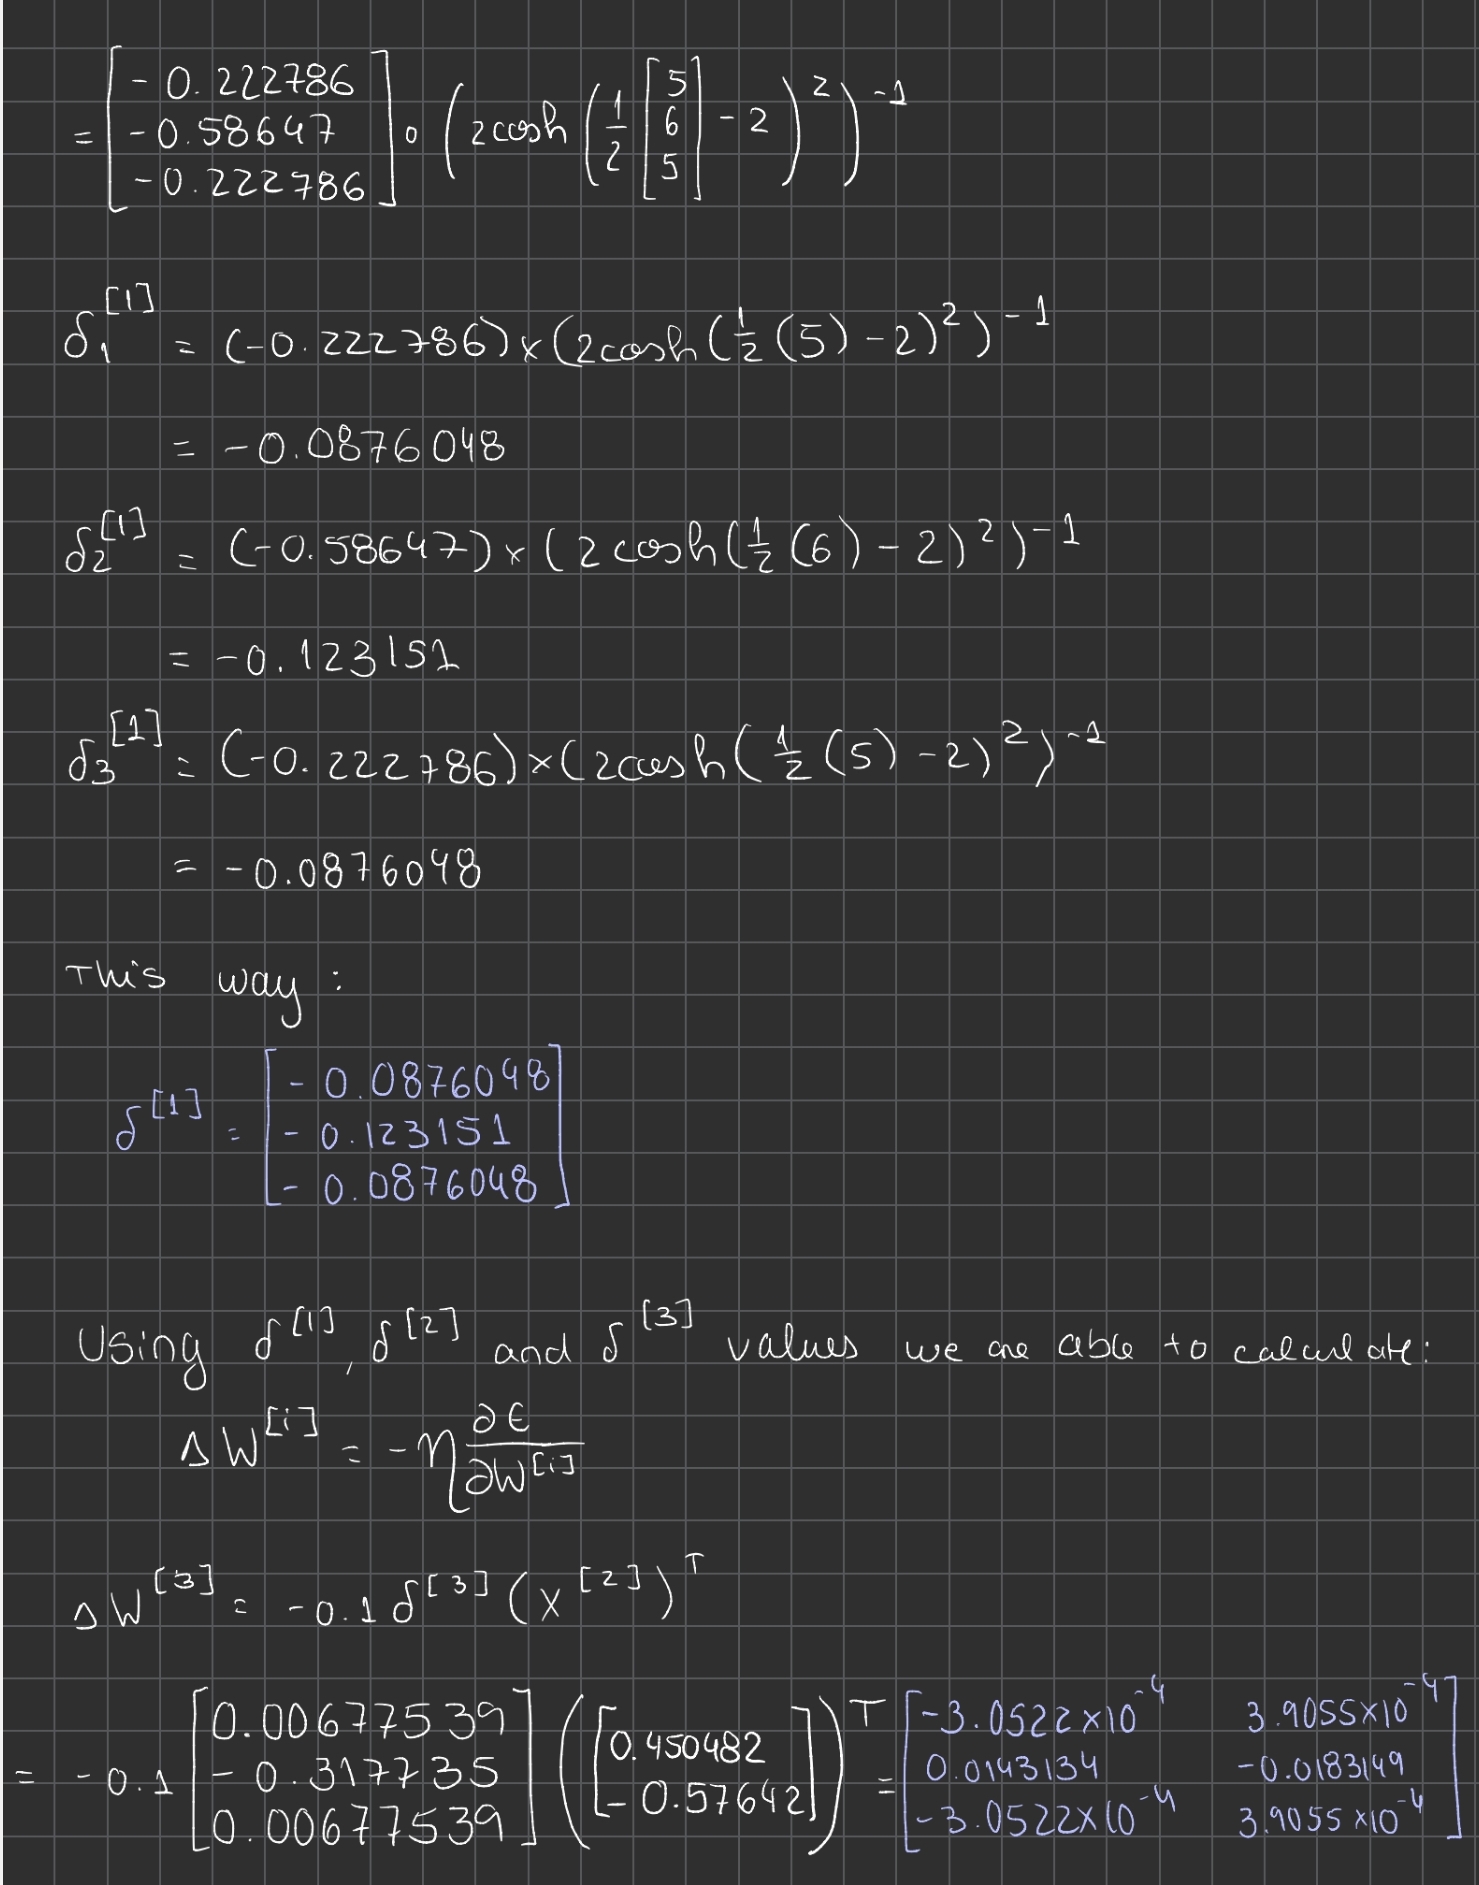 = [-0.222786; -0.58647; -0.222786] ∘ (2cosh(1/2 [5; 6; 5] - 2)²)⁻¹
δ₁^[1] = (-0.222786)×(2cosh(1/2(5)-2)²)⁻¹
= -0.0876048
δ₂^[1] = (-0.58647)×(2cosh(1/2(6)-2)²)⁻¹
= -0.123151
δ₃^[1] = (-0.222786)×(2cosh(1/2(5)-2)²)⁻¹
= -0.0876048
This way:
δ^[1] = [-0.0876048; -0.123151; -0.0876048]
Using δ^[1], δ^[2] and δ^[3] values we are able to calculate:
ΔW^[i] = -η ∂E/∂W^[i]
ΔW^[3] = -0.1 δ^[3] (x^[2])^T
= -0.1 [0.00677539; -0.317735; 0.00677539] ([0.450482; -0.57642])^T = [-3.0522×10⁻⁴ 3.9055×10⁻⁴; 0.0143134 -0.0183149; -3.0522×10⁻⁴ 3.9055×10⁻⁴]